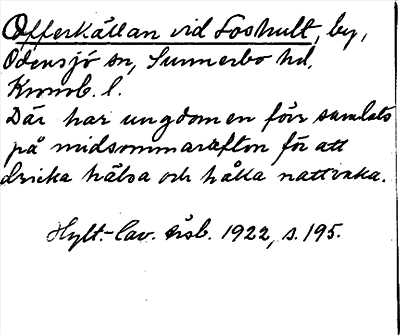 Offerkällan vid Toshult, by,
Odensjö sn, Sunnerbo hd,
Kronob. l.
Där har ungdomen förr samlats
på midsommarafton för att
dricka hälsa och hålla nattvaka.
Hylt.-Cav. årsb. 1922, s. 195.